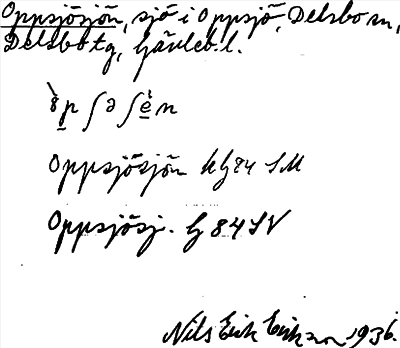 Oppsjösjön, sjö i Oppsjö, Delsbo sn,
Delsbo tg, Gävleb. l.
Oppsjösjön hG 84 SM
Oppsjösj. G 84 SV
Nils Erik Eriksson 1936.